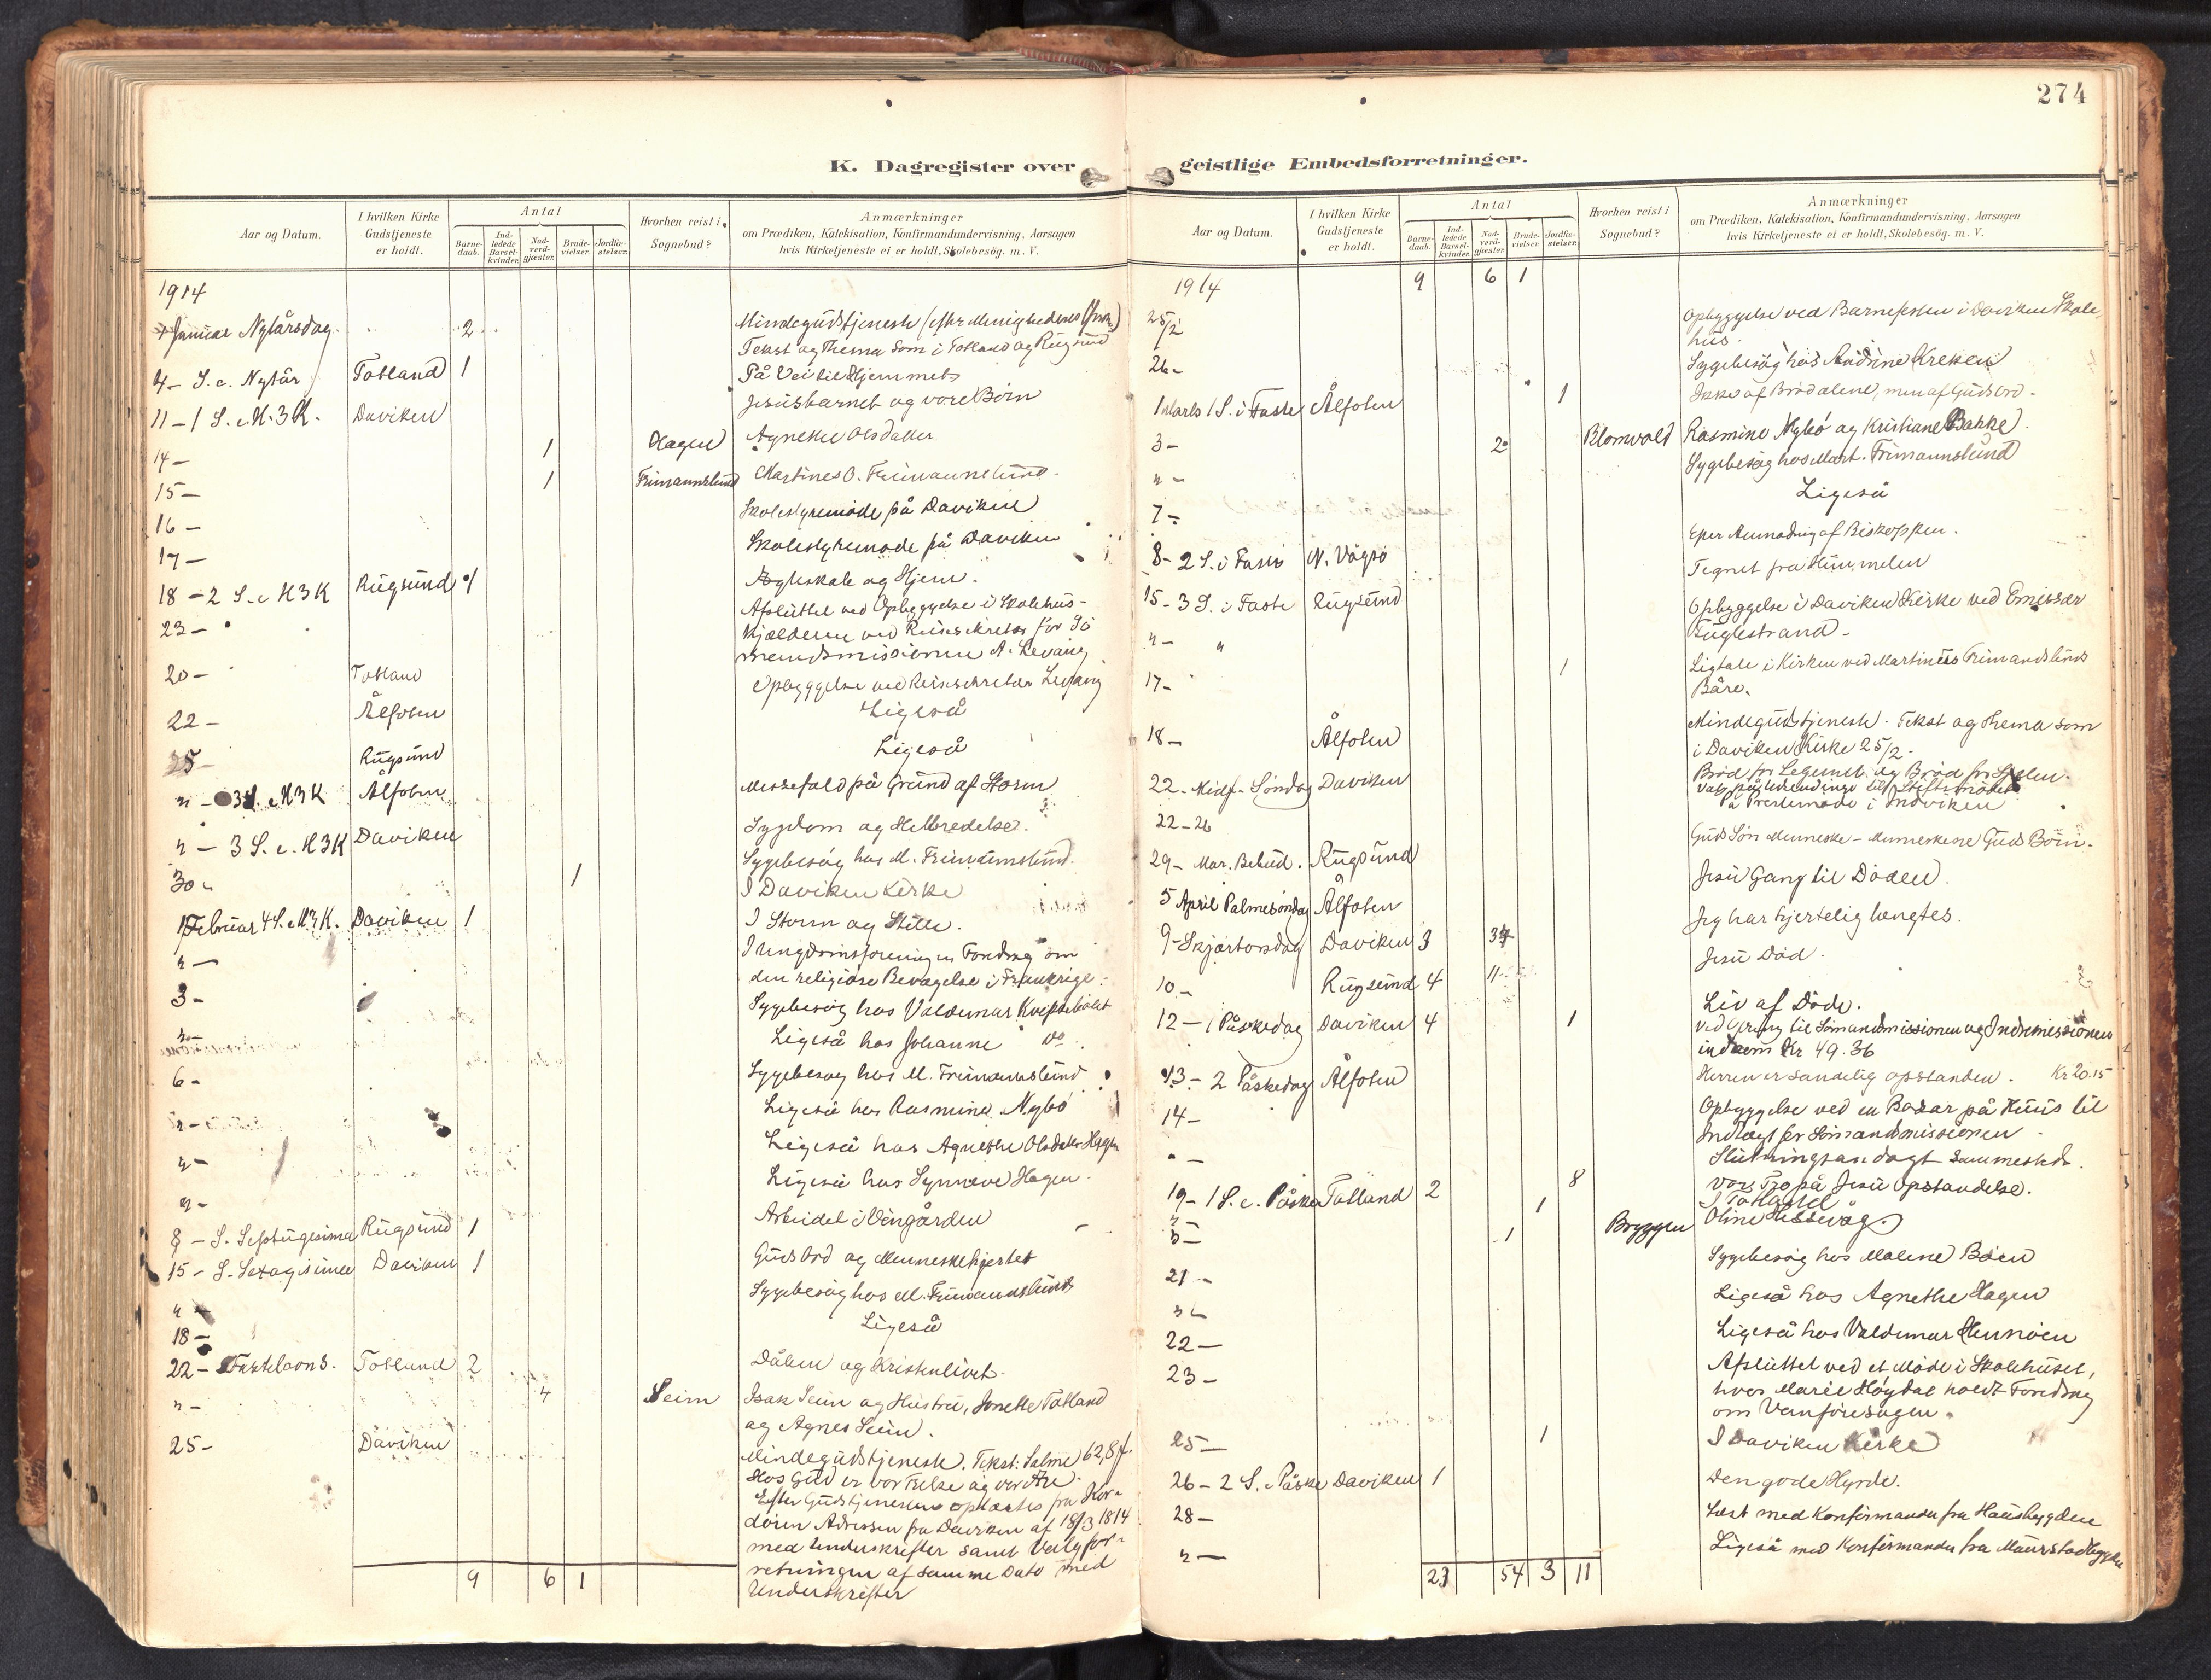 274
K. Dagregister over geistlige Embedsforretninger.
Aar og Datum.
I hvilken Kirke Gudstjeneste er holdt.
Antal
Barnedaab.
Indledede Barselkvinder.
Nadverdgjæster.
Brudevielser.
Jordfæstelser.
Hvorhen reist i Sognebud?
Anmærkninger
om Prædiken, Katekisation, Konfirmandundervisning, Aarsagen
hvis Kirketjeneste ei er holdt, Skolebesög. m. V.
1914
Januar Nytårsdag. 2 Mindegudstjeneste (efter Menighedens
Tekst og Thema som i Totland og Rugsund
4 - S. e. Nytår Totland 1 På Vei til Hjemmet
11 - 1 S. e. H. 3 K. Daviken Jesusbarnet og vore Børn
14 - 1 Hagen Agnethe Olsdatter
15 - 1 Frimannslund Martines O. Frimannslund.
16 - Skolestyremøde på Daviken
17 - Skolestyremøde på Daviken
18 - 2 S. e H3K Rugsund 1 Ægteskab og Hjem.
23 - Afsluttet ved Opbyggelse i Skolehus-
kjælderen ved Reisesekretær for Sø
mandsmissionen A. Levang
20 - Totland Opbyggelse ved Reisesekretær Levang
22 - Ålfoten Ligeså
25 - Rugsund Ligeså
" - 3 S. e H3K Ålfoten Messefald på Grund af Storm
" - 3 S. e. H3K Daviken Sygdom og Helbredelse.
Sygebesøg hos M. Frimannslund.
30 - 1 I Daviken Kirke
1 Februar 4 S. e H3K. Daviken 1 I Storm og Stille.
" - I Ungdomsforeningen Foredrag om
den religiøse Bevægelse i Frankrige.
3 - Sygebesøg hos Valdemar
" - Ligeså hos Johanne do.
6 - Sygebesøg hos M. Frimannslund
" - Ligeså hos Rasmine Nybø
" - Ligeså hos Agnethe Olsdatter Hagen
" - Ligeså hos Synneve Hagen.
8 - S. Septugesima Rugsund 1 Arbeidet i Vingården
15 - S. Sexagisimea Daviken 1 Guds Ord og Menneskehjertet
" - Sygebesøg hos M. Frimannslund
18 - Ligeså
22 - Fastelavns. Totland 2 Dåben og Kristenlivet.
" - 4 Seim Isak Seim og Hustru, Jonette Totland
og Agnes Seim.
25 - Daviken Mindegudstjeneste. Tekst: Salme 62,8 f.
Hos Gud er vor Frelse og vor Ære.
Efter Gudstjenesten oplæstes fra Kor-
døren Adressen fra Daviken af 18/3 1814
med Underskrifter samt Valgfor-
retningen af samme Dato med
Underskrifter
9 6 1
Aar og Datum.
I hvilken Kirke Gudstjeneste er holdt.
Antal
Barnedaab.
Indledede Barselkvinder.
Nadverdgjæster.
Brudevielser.
Jordfæstelser.
Hvorhen reist i Sognebud?
Anmærkninger
om Prædiken, Katekisation, Konfirmandundervisning, Aarsagen
hvis Kirketjeneste ei er holdt, Skolebesög. m. V.
1914 9 6 1
25/2 Opbyggelse ved Barnefesten i Daviken Skole-
hus.
26 - Sygebesøg hos Andrine Kreken
1 Marts 1 S. i Faste Ålfoten 1 Ikke af Brød alene, men af Guds Ord.
3 - 2 Blomvold Rasmine Nybø og Kristiane Bakke.
" - Sygebesøg hos Mart. Frimannslund
7 - Ligeså
8 - 2 S. i Faste N. Vågsø Efter Anmodning af Biskoppen.
15 - 3 S. i Faste Rugsund Tegnet fra Himmelen
" - " Opbyggelse i Daviken Kirke ved Emissær
Fuglestrand -
17 - 1 Ligtale i Kirken ved Martines Frimandslunds
Båre.
18 - Ålfoten Mindegudstjeneste. Tekst og Thema som
i Daviken Kirke 25/2.
22 - Midf. Søndag Daviken Brød for Legemet og Brød for Sjelen.
22 - 26 På Prestemøde i Indviken
29 - Mar. Bebud. Rugsund Guds Søn Menneske - Menneskene Guds Børn.
5 April Palmesøndag Ålfoten Jesu Gang til Døden.
9 - Skjærtorsdag Daviken 3 34 Jeg har hjertelig længtes.
10 - Rugsund 4 11 Jesu Død.
12 - 1 Påskedag Daviken 4 1 Liv af Døde.
Ved Ofring til Sømandsmissionen og Indremissionen
indkom Kr 49.36
13 - 2 Påskedag Ålfoten Herren er sandelig opstanden. Kr 20.15
14 - Opbyggelse ved en Basar på Huus til
Indtægt for Sømandsmissionen
" - Slutningsandagt sammesteds.
19 - 1 S. e. Påske Totland 2 8 Vor Tro på Jesu Opstandelse.
" - 1 I Totland
" - 1 Bryggen Oline Hessevåg.
21 - Sygebesøg hos Malene Bøen
" - Ligeså hos Agnethe Hagen
22 - Ligeså hos Valdemar Hennøen
23 - Afsluttet ved et Møde i Skolehuset,
hvor Marie Høydal holdt Foredrag
om Vanføresagen.
25 - 1 I Daviken Kirke
26 - 2 S. e Påske Daviken 1 Den gode Hyrde.
28 - Læst med Konfirmander fra Hausbygden
" - Ligeså med Konfirmander fra Maurstadbygden
23 54 3 11